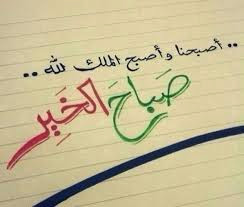 .. أصبحنا وأصبح الملك لله ..
صباح الخير